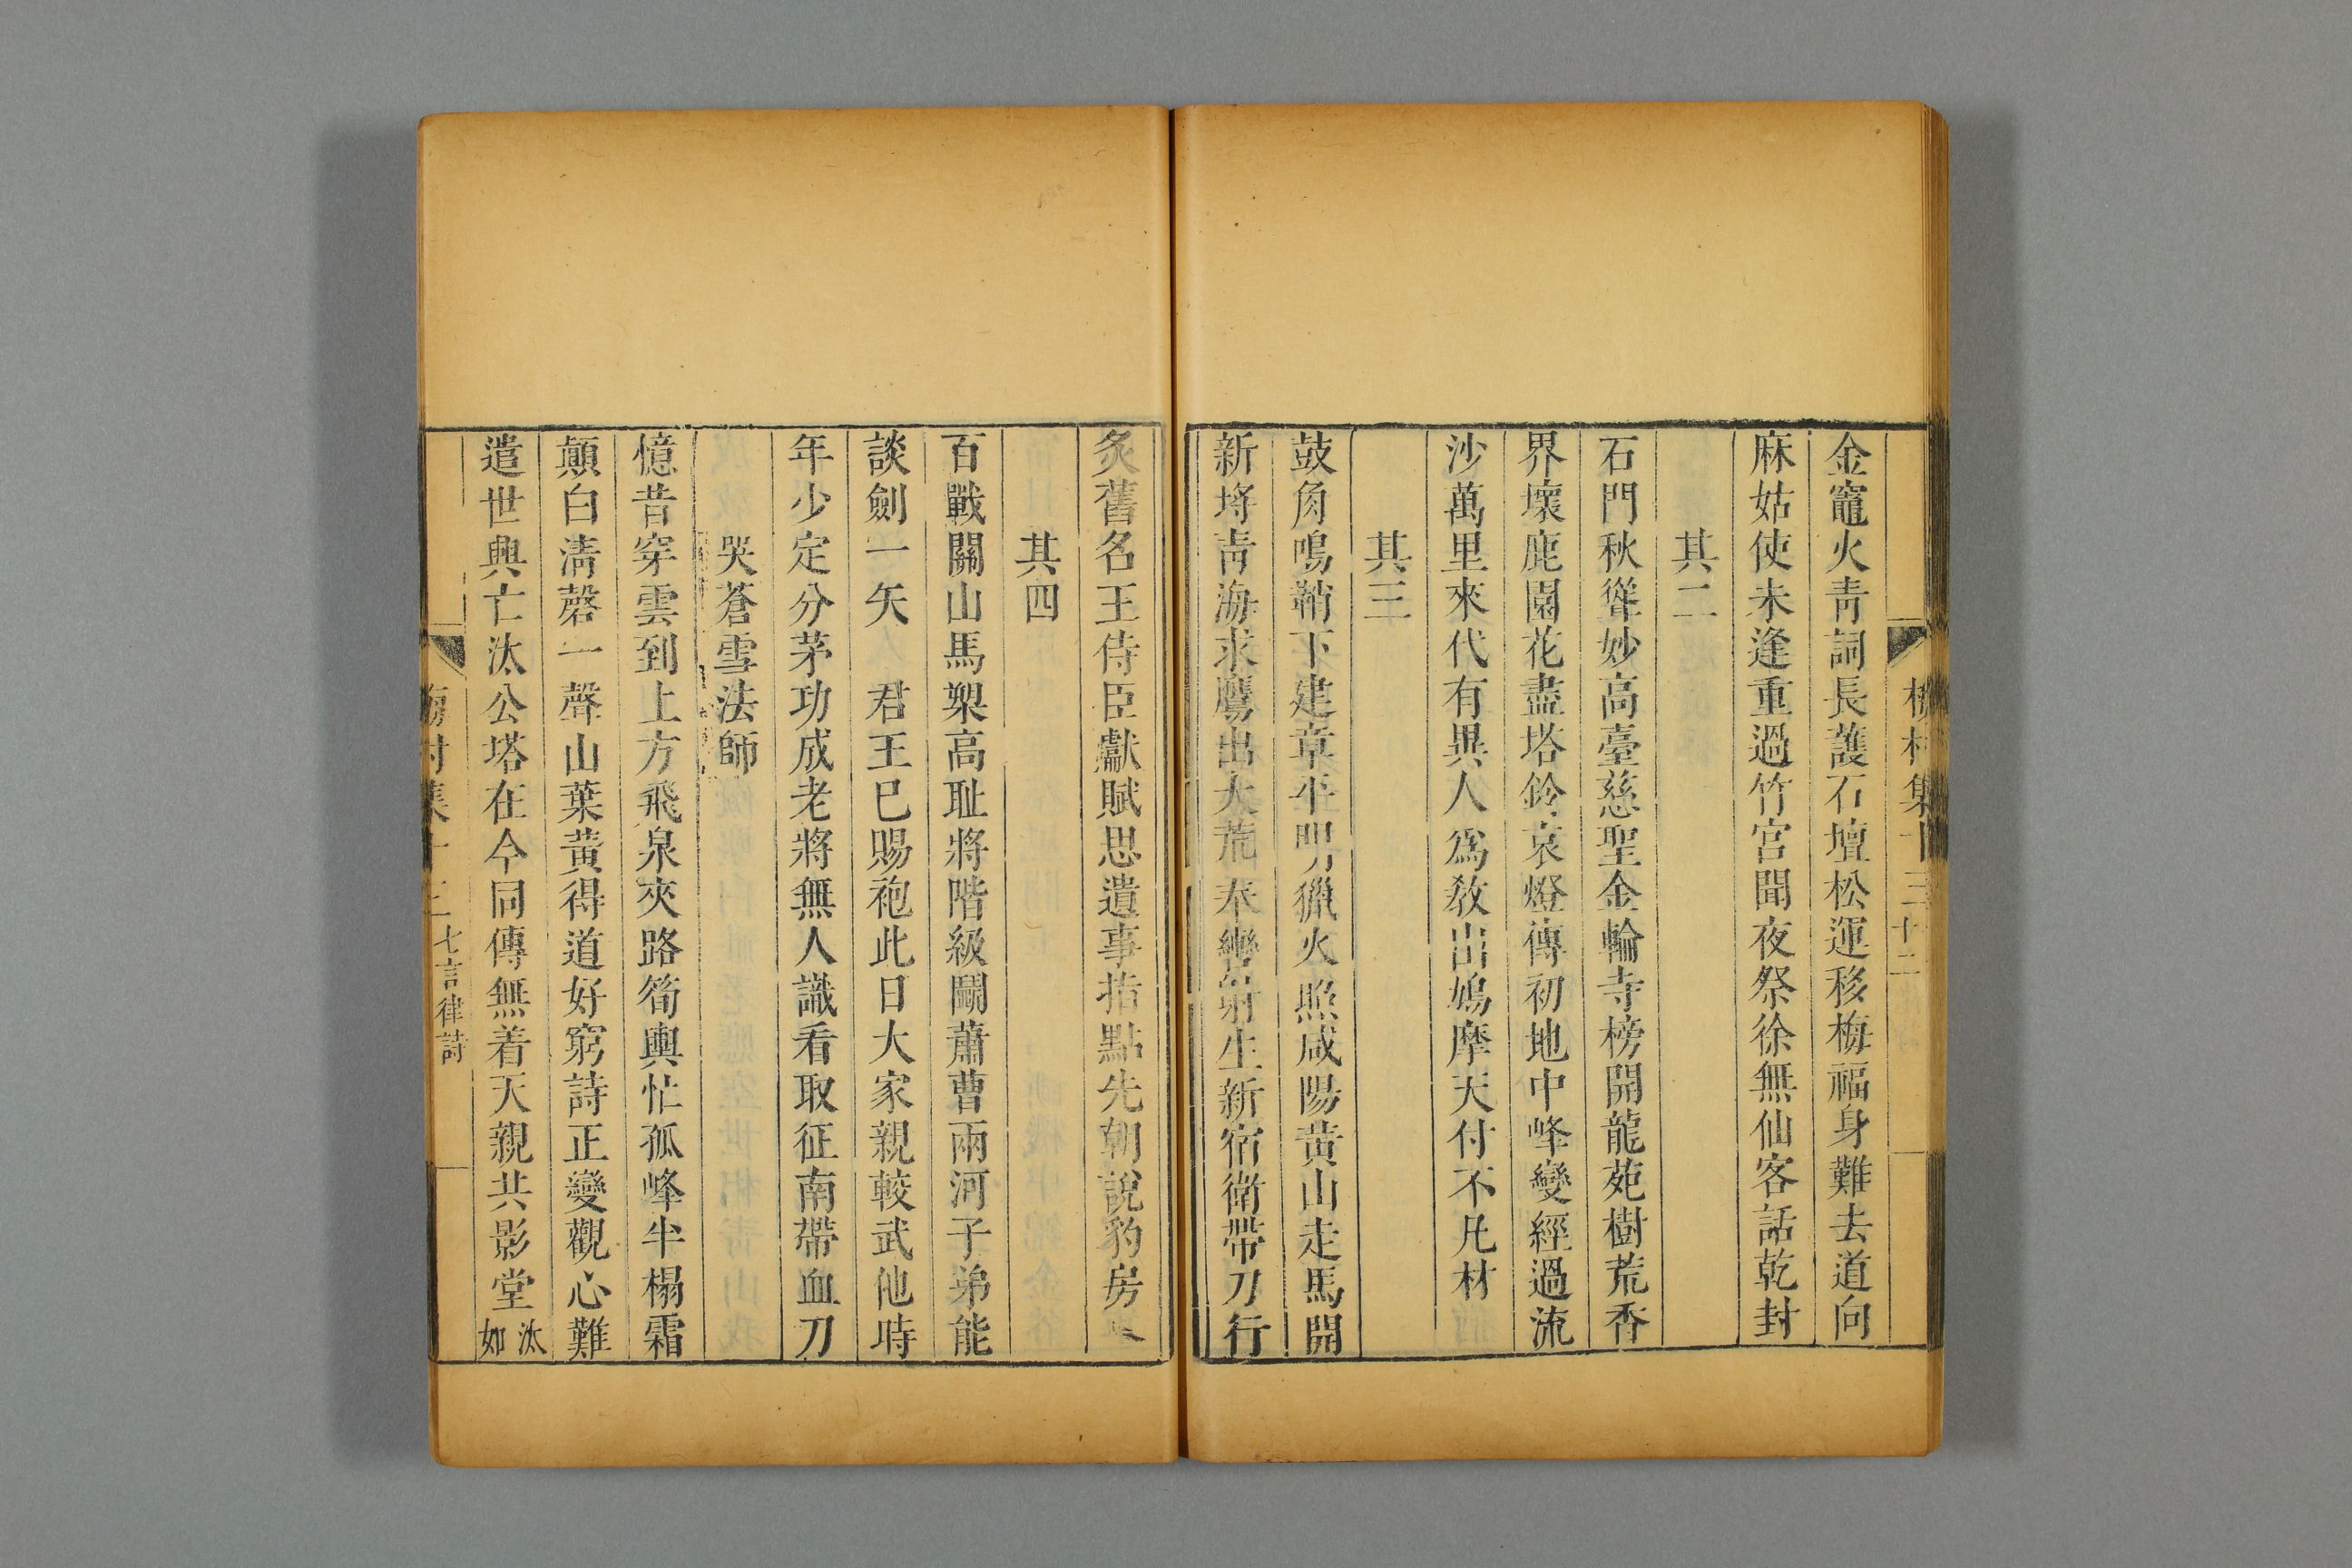 金竈火靑詞長護石壇松運移梅福身難去道向
麻姑使未逢重過竹宮聞夜祭徐無仙客話乾封
其二
石門秋聳妙高臺慈聖金輪寺榜開龍苑樹荒香
界壞鹿園花盡塔鈴哀燈傳初地中峰變經過流
沙萬里來代有異人爲敎出鳩摩天付不凡材
其三
鼓角鳴鞘下建章平明獵火照咸陽黃山走馬開
新埒靑海求鷹出大荒奉轡射生新宿衛帶刀行
炙舊名王侍臣獻賦思遺事指點先朝說豹房
其四
百戰關山馬槊高恥將階級鬭蕭曹兩河子弟能
談劍一矢君王已賜袍此日大家親較武他時
年少定分茅功成老將無人識看取征南帶血刀
哭蒼雪法師
憶昔穿雲到上方飛泉夾路筍輿忙孤峰半榻霜
顛白淸磬一聲山葉黃得道好窮詩正變觀心難
遣世興亡汰公塔在今同傳無着天親共影堂汰如
梅村集十三 七言律詩